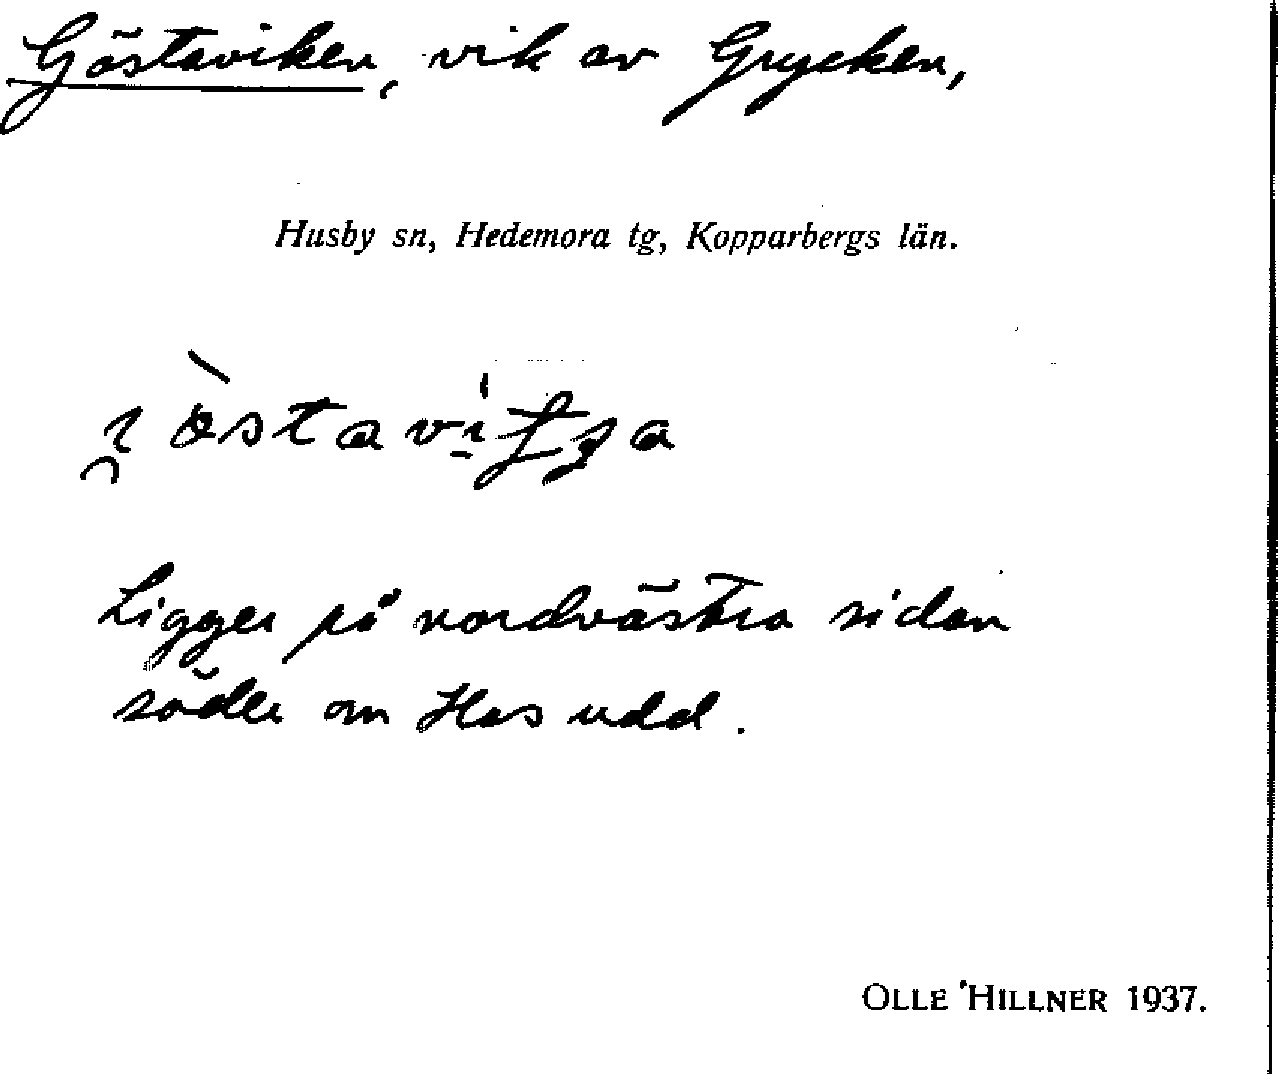 Göstaviken, vik av Grycken,
Husby sn, Hedemora tg, Kopparbergs län.
Ligger på nordvästra sidan
söder om Has udd.
OLLE HILLNER 1937.